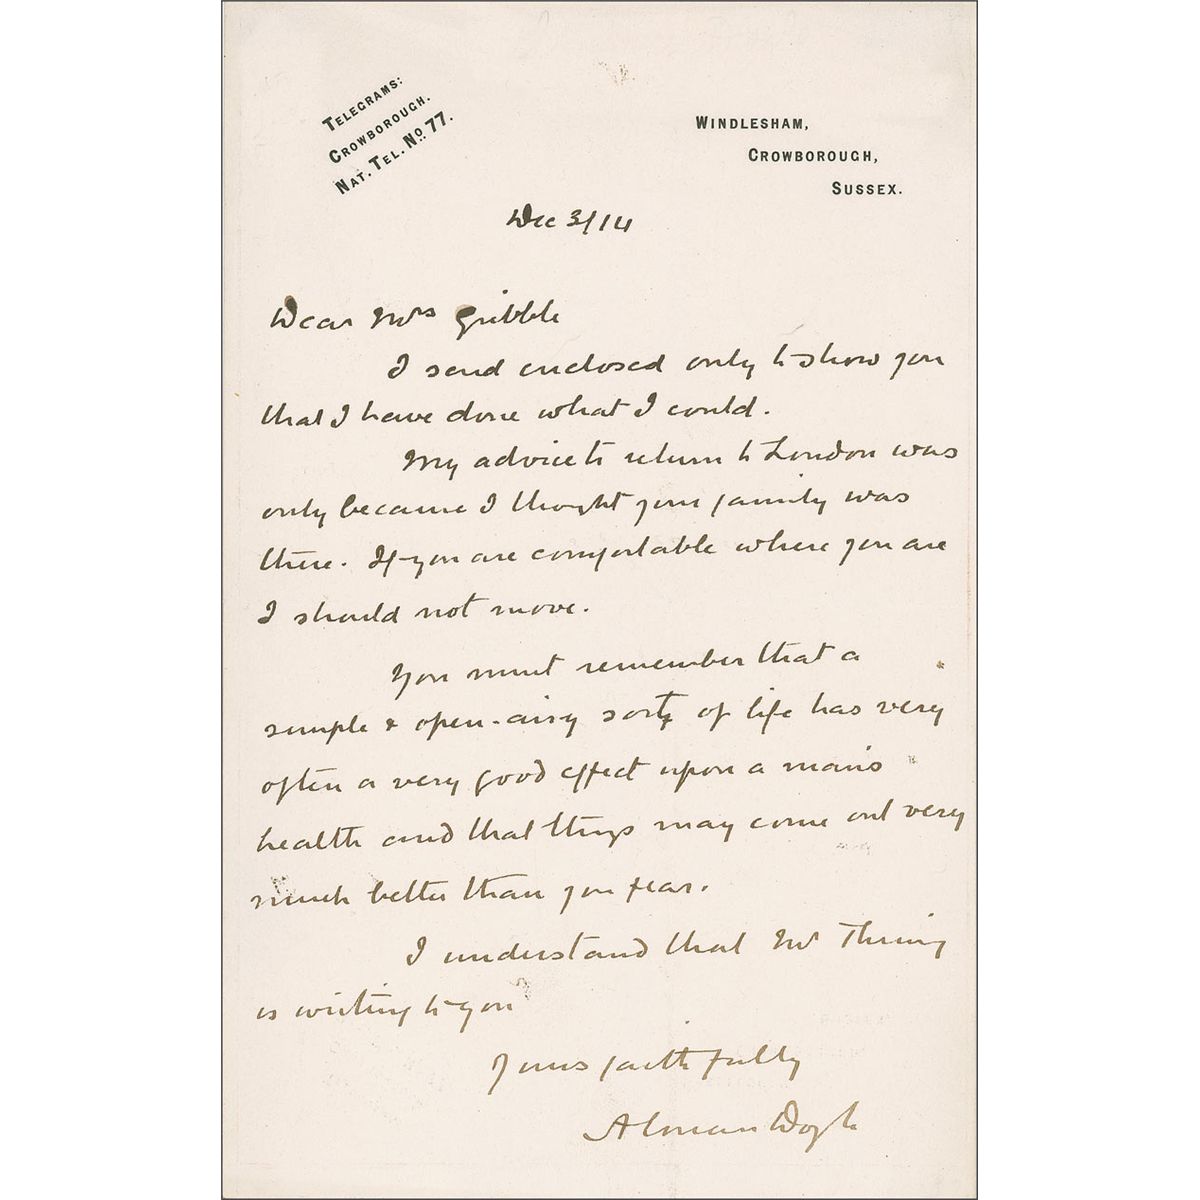 TELEGRAMS:
CROWBOROUGH.
NAT. TEL. No. 77.
WINDLESHAM,
CROWBOROUGH,
SUSSEX.
Dec 3/14
Dear Mrs Gribble
I send enclosed only to show you
that I have done what I could.
My advice to return to London was
only because I thought your family was
there. If you are comfortable where you are
I should not move.
You must remember that a
simple & open-airy sort of life has very
often a very good effect upon a man's
health and that things may come out very
much better than you fear.
I understand that Mr Thring
is writing to you
Yours faithfully
A Conan Doyle